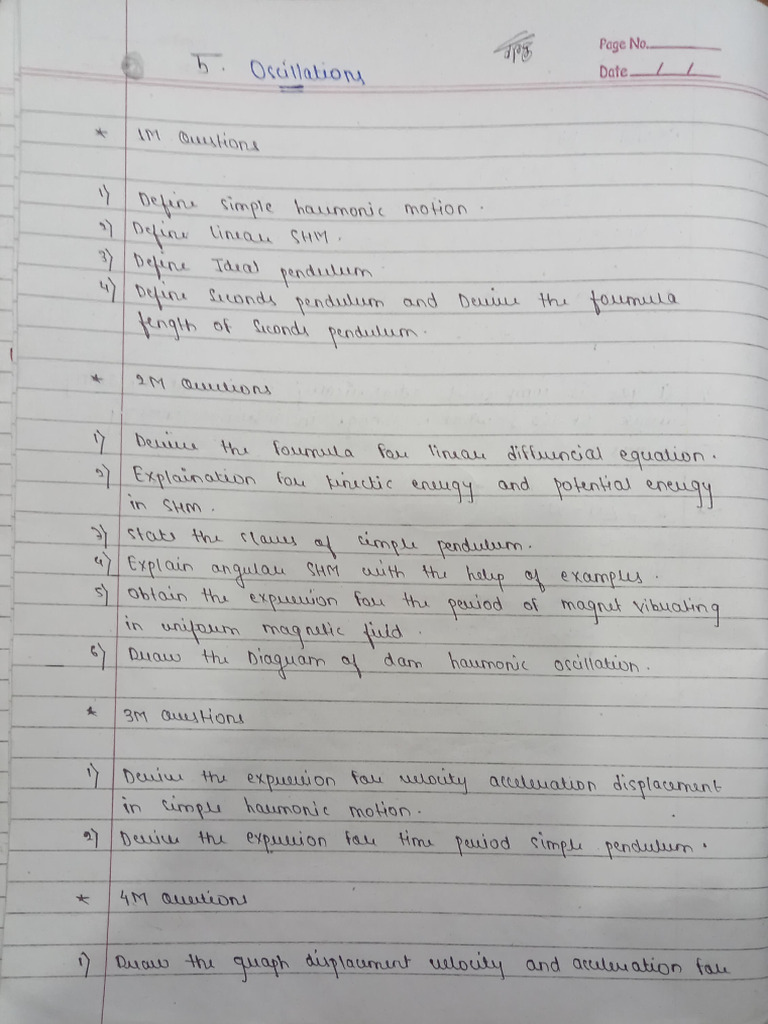 Page No.
Date / /
5. Oscillations
* 1M Questions
1) Define simple harmonic motion.
2) Define linear SHM.
3) Define Ideal pendulum
4) Define Seconds pendulum and Derive the formula
length of Seconds pendulum.
* 2M Questions
1) Derive the formula for linear differencial equation.
2) Explaination for kinectic energy and potential energy
in SHM.
3) State the slaws of simple pendulum.
4) Explain angular SHM with the help of examples.
5) Obtain the expression for the period of magnet vibrating
in uniform magnetic field.
6) Draw the Diagram of dam harmonic oscillation.
* 3M Questions
1) Derive the expression for velocity acceleration displacement
in simple harmonic motion.
2) Derive the expression for time period simple pendulum.
* 4M Questions
1) Draw the graph displacement velocity and acceleration for